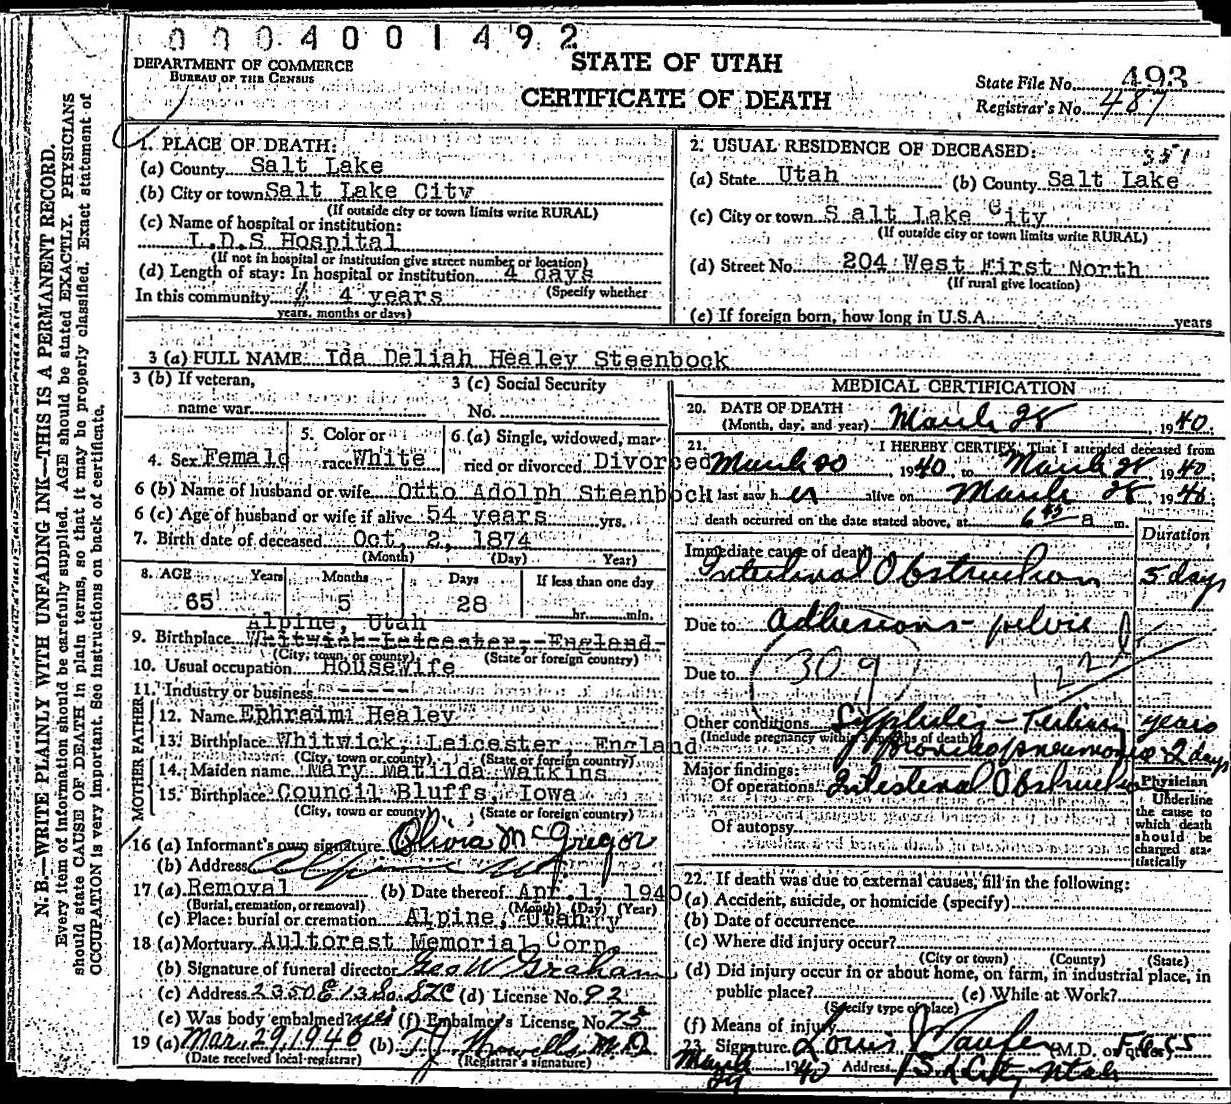 0 0 0 4 0 0 1 4 9 2
DEPARTMENT OF COMMERCE
BUREAU OF THE CENSUS
STATE OF UTAH
CERTIFICATE OF DEATH
State File No. 493
Registrar's No. 487
N. B.—WRITE PLAINLY WITH UNFADING INK—THIS IS A PERMANENT RECORD.
Every item of information should be carefully supplied. AGE should be stated EXACTLY. PHYSICIANS
should state CAUSE OF DEATH in plain terms, so that it may be properly classified. Exact statement of
OCCUPATION is very important. See instructions on back of certificate.
1. PLACE OF DEATH:
(a) County Salt Lake
(b) City or town Salt Lake City
(If outside city or town limits write RURAL)
(c) Name of hospital or institution:
L.D.S Hospital
(If not in hospital or institution give street number or location)
(d) Length of stay: In hospital or institution 4 days
(Specify whether
In this community 4 years
years, months or days)
2. USUAL RESIDENCE OF DECEASED:
351
(a) State Utah (b) County Salt Lake
(c) City or town Salt Lake City
(If outside city or town limits write RURAL)
(d) Street No. 204 West First North
(If rural give location)
(e) If foreign born, how long in U.S.A. years
3 (a) FULL NAME Ida Deliah Healey Steenbock
3 (b) If veteran,
name war
3 (c) Social Security
No.
4. Sex Female
5. Color or
race White
6 (a) Single, widowed, mar-
ried or divorced Divorced
6 (b) Name of husband or wife Otto Adolph Steenbock
6 (c) Age of husband or wife if alive 54 years yrs.
7. Birth date of deceased Oct. 2, 1874
(Month) (Day) Year)
8. AGE Years Months Days If less than one day
65 5 28 hr. min.
Alpine, Utah
9. Birthplace Whitwick Leicester, England
(City, town, or county) (State or foreign country)
10. Usual occupation Housewife
11. Industry or business -----
FATHER
12. Name Ephraim Healey
13. Birthplace Whitwick, Leicester, England
(City, town, or county) (State or foreign country)
MOTHER
14. Maiden name Mary Matilda Watkins
15. Birthplace Council Bluffs, Iowa
(City, town or county) (State or foreign country)
16 (a) Informant's own signature Olivia McGregor
(b) Address Alpine Ut.
17 (a) Removal (b) Date thereof Apr. 1, 1940
(Burial, cremation, or removal) (Month) (Day) (Year)
(c) Place: burial or cremation Alpine, Utah
18 (a) Mortuary Aultorest Memorial Corp.
(b) Signature of funeral director Geo W Graham
(c) Address 2350 E 13 So. SLC (d) License No. 92
(e) Was body embalmed? yes (f) Embalmer's License No. 75
19 (a) Mar. 29, 1940 (b) T.J. Howells M.D.
(Date received local registrar) (Registrar's signature)
MEDICAL CERTIFICATION
20. DATE OF DEATH
(Month, day, and year) March 28, 1940.
21. I HEREBY CERTIFY, That I attended deceased from
March 1940 to March 28 1940
I last saw her alive on March 28 1940
death occurred on the date stated above, at 6 45 a m.
Duration
Immediate cause of death
Intestinal Obstruction 5 days
Due to adhesions - pelvic
Due to (30 g) 122
Other conditions Syphilis - Tertiary years
(Include pregnancy within 3 months of death)
Bronchopneumonia 2 days
Major findings:
Of operations Intestinal Obstruction
Of autopsy
Physician
Underline
the cause to
which death
should be
charged sta-
tistically
22. If death was due to external causes, fill in the following:
(a) Accident, suicide, or homicide (specify)
(b) Date of occurrence
(c) Where did injury occur?
(City or town) (County) (State)
(d) Did injury occur in or about home, on farm, in industrial place, in
public place? (e) While at Work?
(Specify type of place)
(f) Means of injury
23. Signature Louis J Taufer (M.D. or other)
March 29 1940 Address S L City, Utah